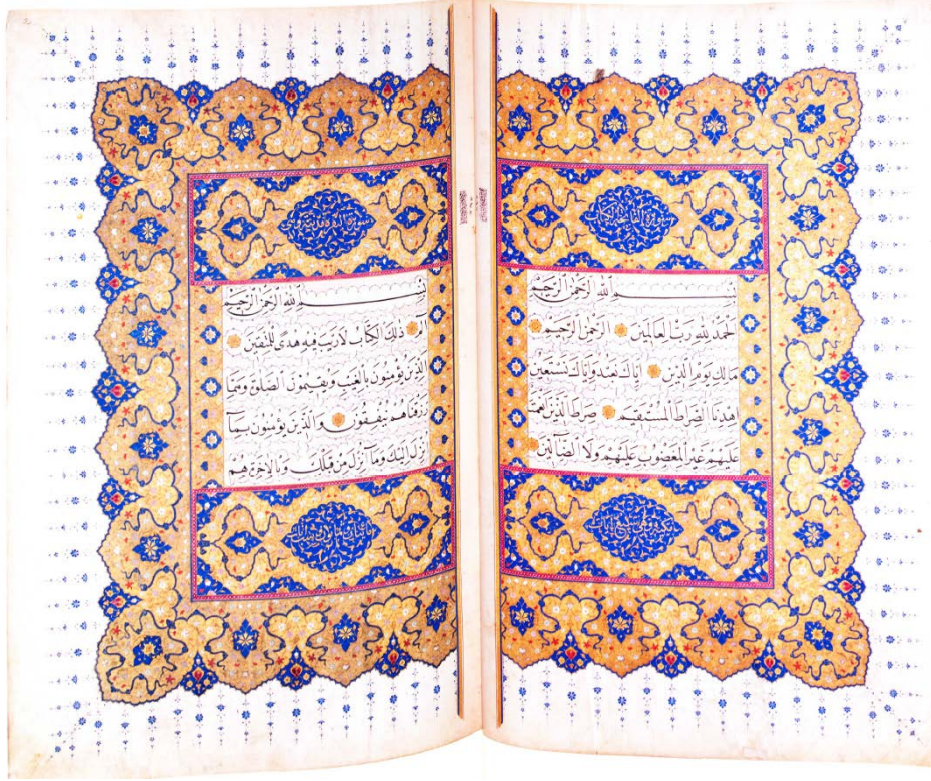 سورة الفاتحة الكتاب
بِسْمِ اللهِ الرَّحْمٰنِ الرَّحِيمِ
اَلْحَمْدُ لِلّٰهِ رَبِّ الْعَالَمِينَ الرَّحْمٰنِ الرَّحِيمِ
مَالِكِ يَوْمِ الدِّينِ اِيَّاكَ نَعْبُدُ وَاِيَّاكَ نَسْتَعِينُ
اِهْدِنَا الصِّرَاطَ الْمُسْتَقِيمَ صِرَاطَ الَّذِينَ اَنْعَمْتَ
عَلَيْهِمْ غَيْرِ الْمَغْضُوبِ عَلَيْهِمْ وَلَا الضَّالِّينَ
مكية وهي سبع آيات
سورة البقرة
بِسْمِ اللهِ الرَّحْمٰنِ الرَّحِيمِ
الٓمٓ ذٰلِكَ الْكِتَابُ لَا رَيْبَ فِيهِ هُدًى لِلْمُتَّقِينَ
اَلَّذِينَ يُؤْمِنُونَ بِالْغَيْبِ وَيُقِيمُونَ الصَّلٰوةَ وَمِمَّا
رَزَقْنَاهُمْ يُنْفِقُونَ وَالَّذِينَ يُؤْمِنُونَ بِمَا
اُنْزِلَ اِلَيْكَ وَمَا اُنْزِلَ مِنْ قَبْلِكَ وَبِالْاٰخِرَةِ هُمْ